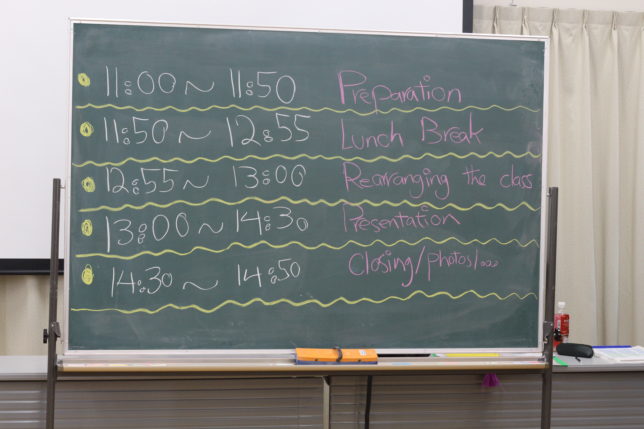 11:00 ~ 11:50 Preparation
11:50 ~ 12:55 Lunch Break
12:55 ~ 13:00 Rearranging the class
13:00 ~ 14:30 Presentation
14:30 ~ 14:50 Closing/photos/...